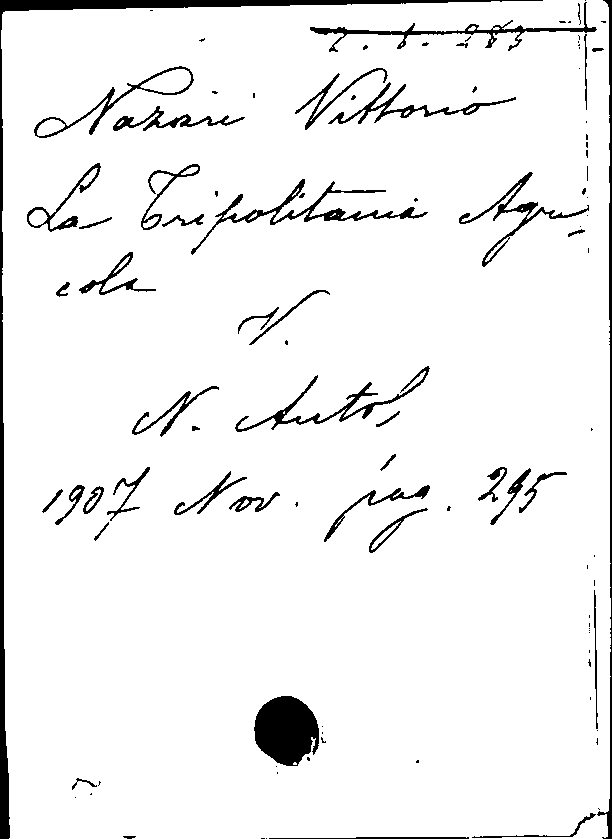 2. 6. 283
Nazari Vittorio
La Tripolitania Agri-
cola
V.
N. Antol,
1907 Nov. pag. 295